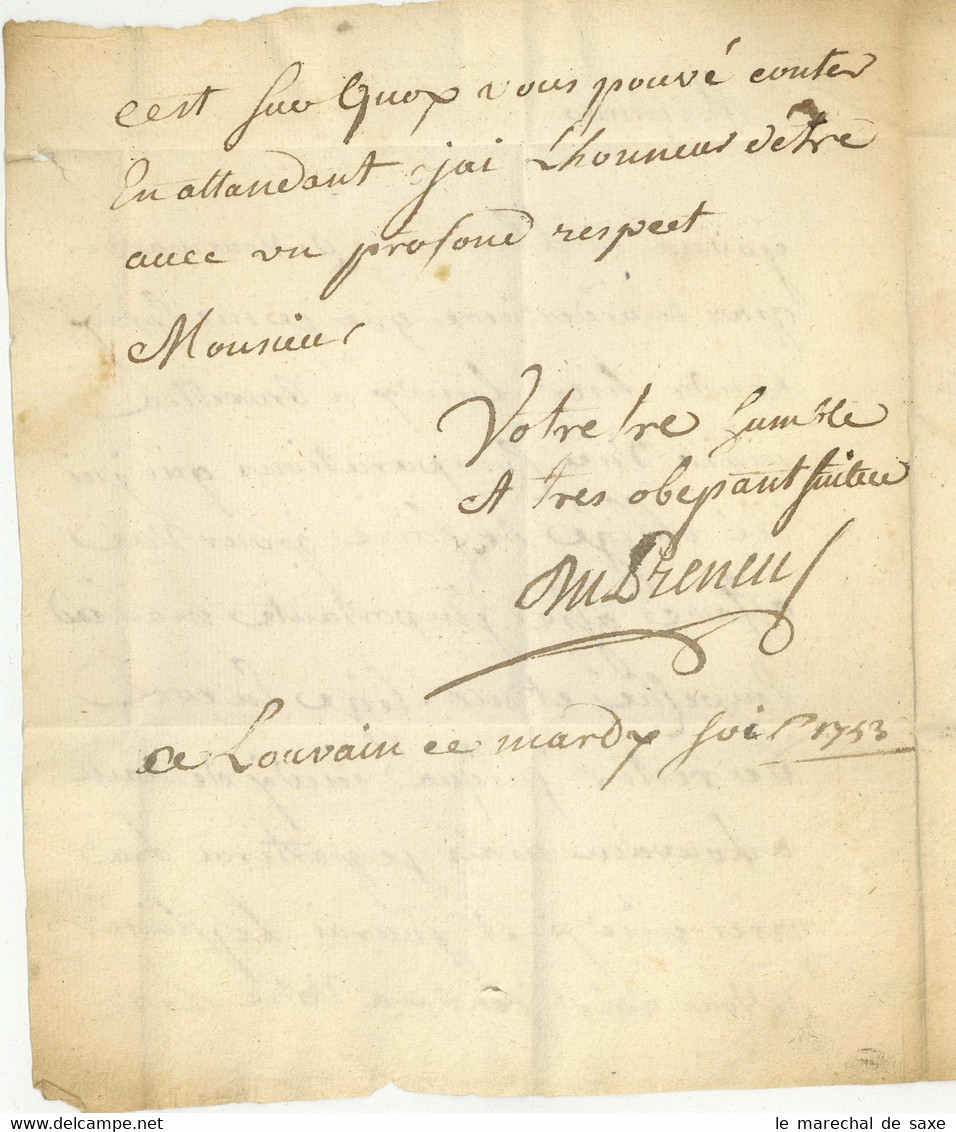 cest sur Quoy vous pouvé conter
En attandant jai Lhonneur détre
avec un profond respect
Monsieur
Votre tre humble
et tres obeysant
de Louvain ce mardy soir 1753
le marechal de saxe